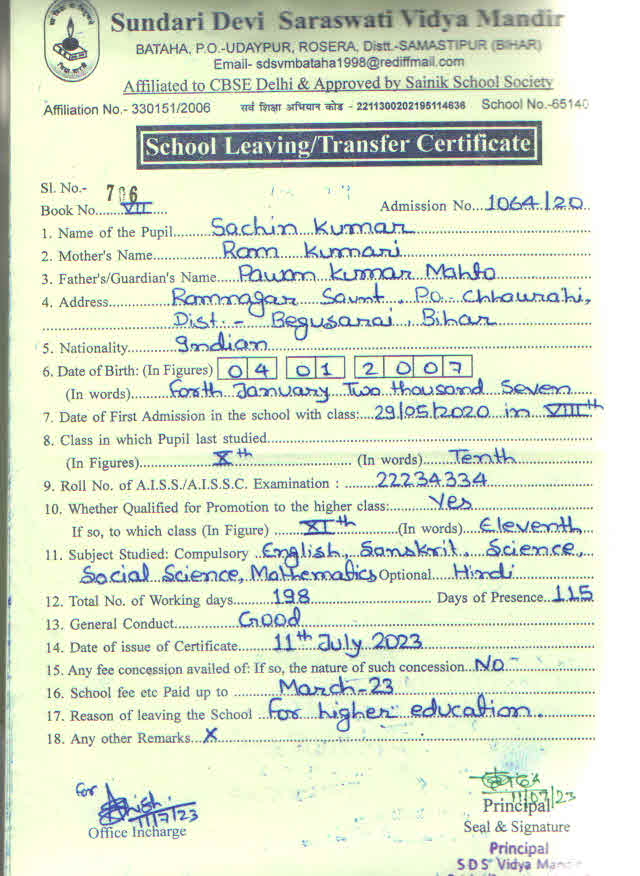 Sundari Devi Saraswati Vidya Mandir
BATAHA, P.O.-UDAYPUR, ROSERA, Distt.-SAMASTIPUR (BIHAR)
Email- sdsvmbataha1998@rediffmail.com
Affiliated to CBSE Delhi & Approved by Sainik School Society
Affiliation No.- 330151/2006 सर्व शिक्षा अभियान कोड - 2211300202195114636 School No.-65140
School Leaving/Transfer Certificate
Sl. No.- 706
Book No. VII Admission No. 1064/20
1. Name of the Pupil Sachin Kumar
2. Mother's Name Ram Kumari
3. Father's/Guardian's Name Pawan Kumar Mahto
4. Address Ramnagar Saunt, Po - Chhaurahi,
Dist:- Begusarai, Bihar
5. Nationality Indian
6. Date of Birth: (In Figures) 04 01 2007
(In words) Forth January Two thousand Seven
7. Date of First Admission in the school with class: 29/05/2020 in VIIIth
8. Class in which Pupil last studied
(In Figures) Xth (In words) Tenth
9. Roll No. of A.I.S.S./A.I.S.S.C. Examination : 22234334
10. Whether Qualified for Promotion to the higher class: Yes
If so, to which class (In Figure) XIth (In words) Eleventh
11. Subject Studied: Compulsory English, Sanskrit, Science,
Social Science, Mathematics Optional Hindi
12. Total No. of Working days 198 Days of Presence 115
13. General Conduct Good
14. Date of issue of Certificate 11th July 2023
15. Any fee concession availed of: If so, the nature of such concession No -
16. School fee etc Paid up to March-23
17. Reason of leaving the School For higher education.
18. Any other Remarks X
For
11/7/23
Office Incharge
11/07/23
Principal
Seal & Signature
Principal
S D S Vidya Mandir